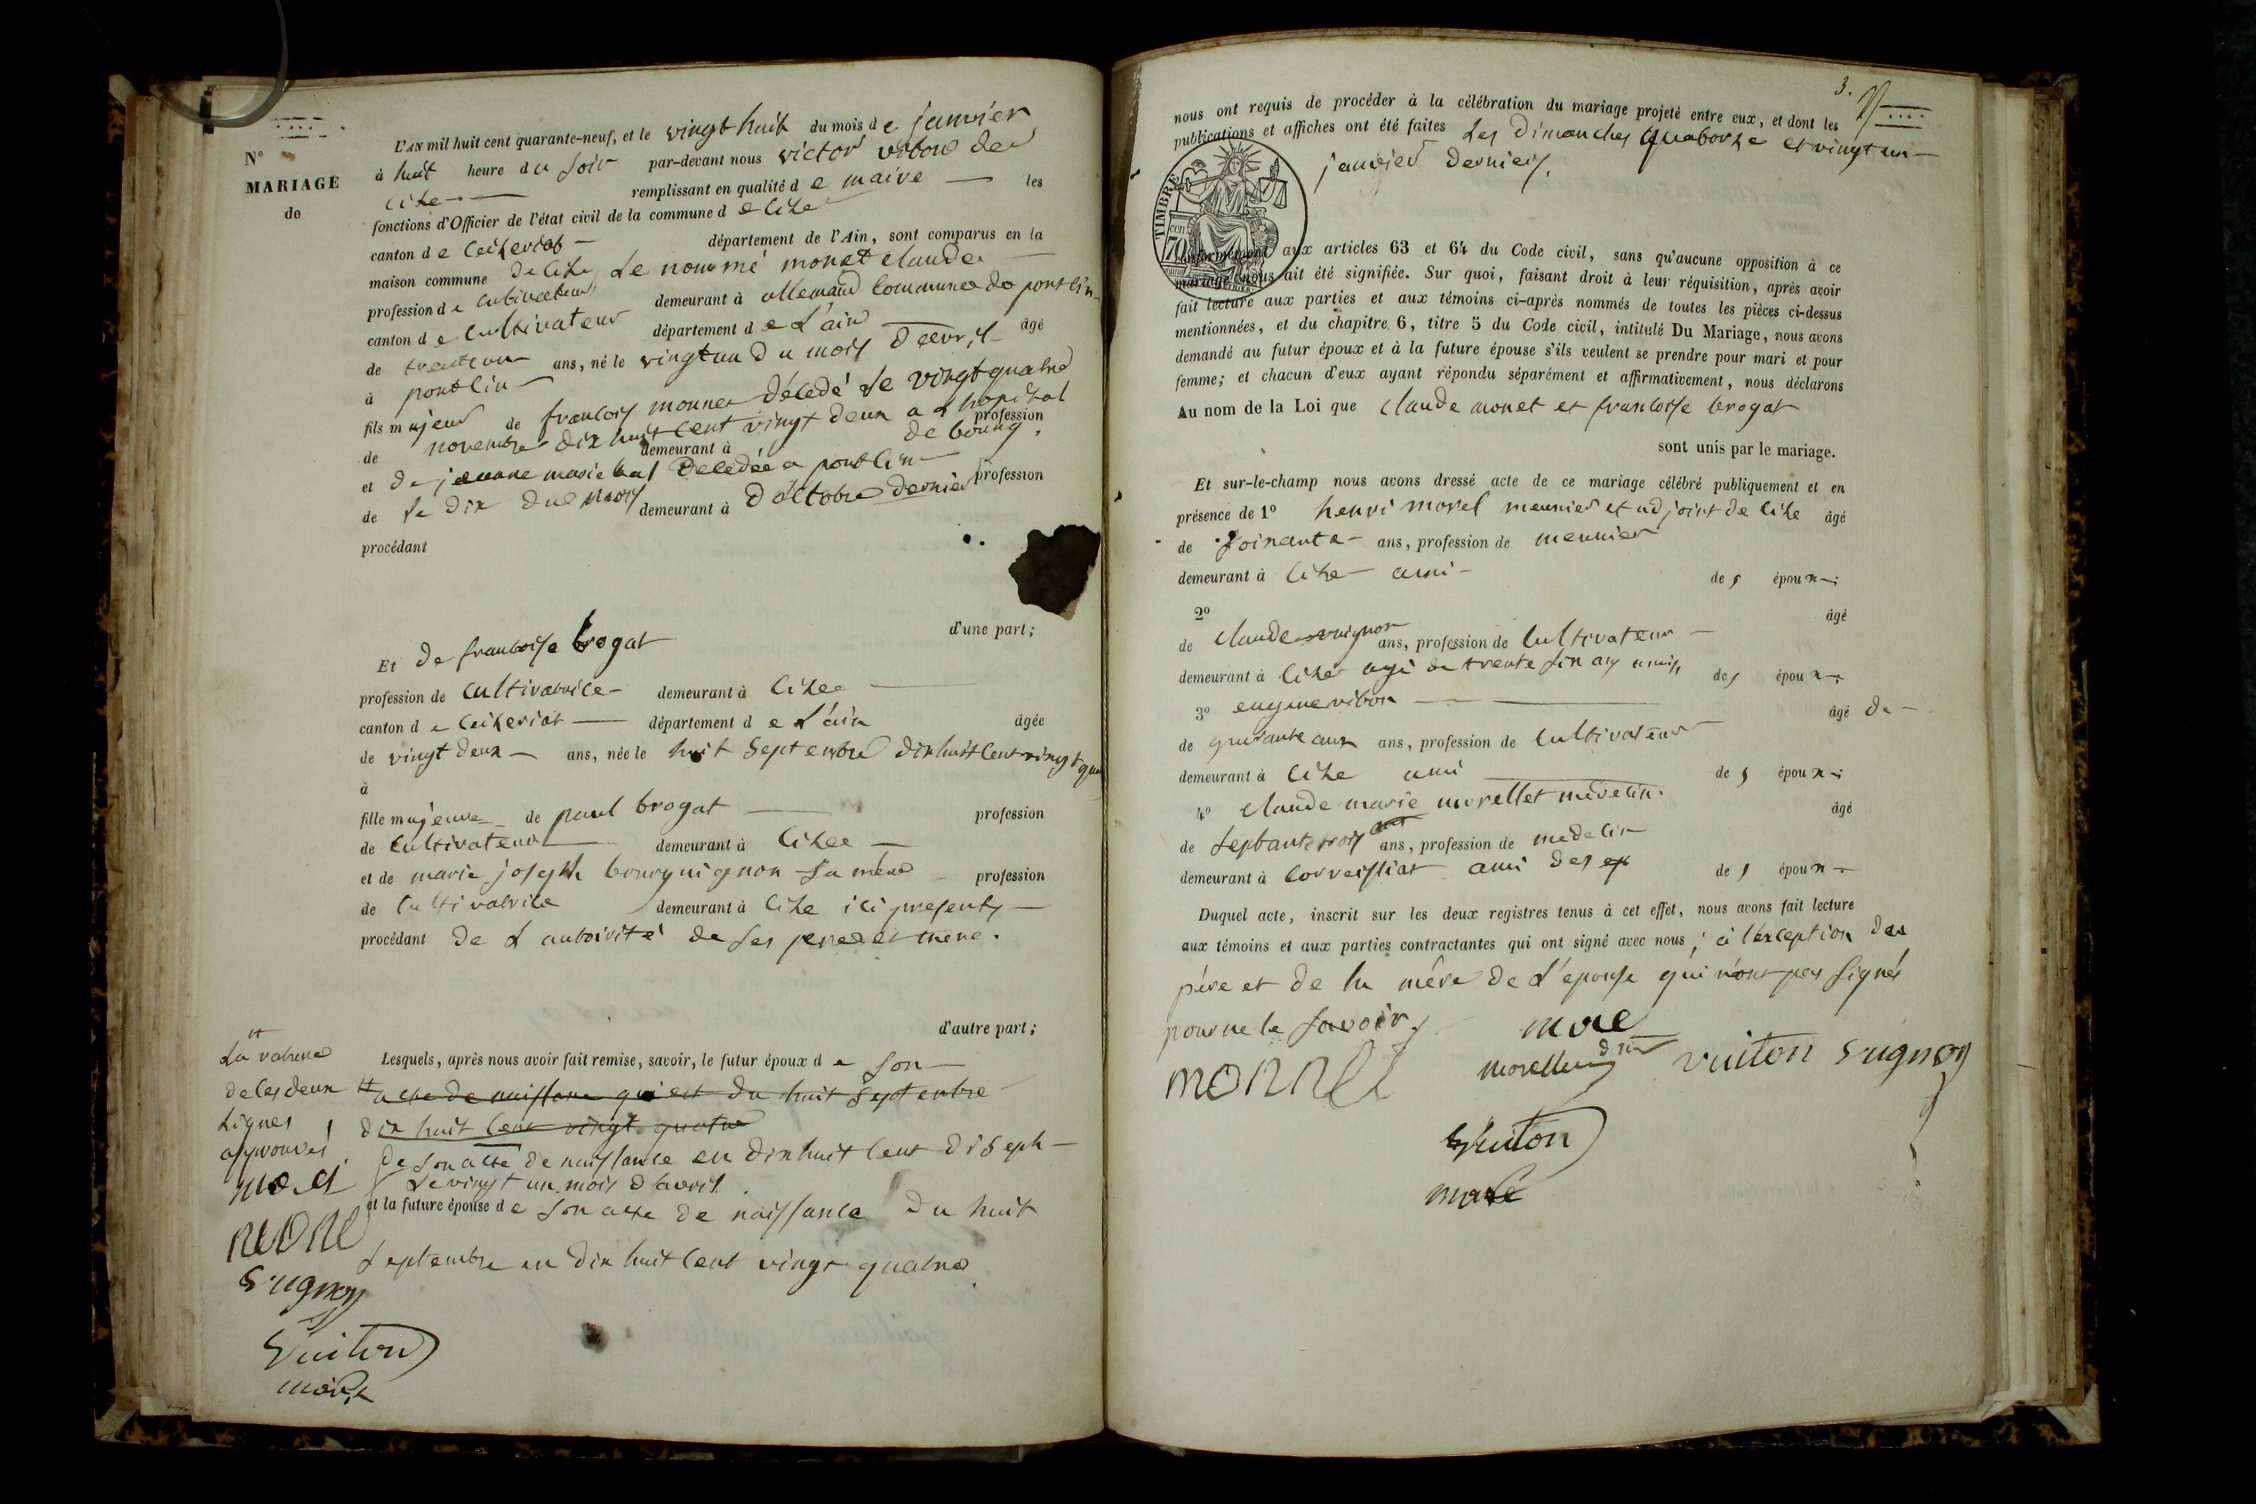 N°
MARIAGE
de
L'AN mil huit cent quarante-neuf, et le vingt huit du mois de janvier
à huit heure du soir par-devant nous victor
cize remplissant en qualité de maire les
fonctions d'Officier de l'état civil de la commune de cize
canton de ceizeriat département de l'Ain, sont comparus en la
maison commune de cize Le nommé monet claude
profession de cultivateur demeurant à allemand commune de pont lin
canton de cultivateur département de L'ain âgé
de trente un ans, né le vingt un du mois d'avril
à pont lin
fils majeur de francois monner décédé Le vingt quatre
de novembre dix huit cent vingt deux a L hopital profession
demeurant à de bourg.
et de jeanne marie décédée a pont lin profession
de Le dix du mois demeurant à d'octobre dernier
procédant
d'une part;
Et de francoise brogat
profession de cultivatrice demeurant à cize
canton de ceizeriat département de L'ain âgée
de vingt deux ans, née le huit Septembre dix huit cent vingt qua
à
fille majeure de paul brogat profession
de cultivateur demeurant à cize
et de marie joseph bourguignon Sa mère profession
de cultivatrice demeurant à cize ici presents
procédant de L autorité de ses pere et mere.
d'autre part;
Lesquels, après nous avoir fait remise, savoir, le futur époux de Son
acte de naissance qui est du huit Septembre
dix huit cent vingt quatre
de Son acte de naissance en dix huit cent diseph
Le vingt un mois d'avril
et la future épouse de Son acte de naissance du huit
Septembre en dix huit cent vingt quatre
de ces deux
Lignes
approuvés
3.
nous ont requis de procéder à la célébration du mariage projeté entre eux, et dont les
publications et affiches ont été faites Les dimanches quatorze et vingt un
janvier dernier.
TIMBRE
70 cen
Conformément aux articles 63 et 64 du Code civil, sans qu'aucune opposition à ce
mariage nous ait été signifiée. Sur quoi, faisant droit à leur réquisition, après avoir
fait lecture aux parties et aux témoins ci-après nommés de toutes les pièces ci-dessus
mentionnées, et du chapitre 6, titre 5 du Code civil, intitulé Du Mariage, nous avons
demandé au futur époux et à la future épouse s'ils veulent se prendre pour mari et pour
femme; et chacun d'eux ayant répondu séparément et affirmativement, nous déclarons
Au nom de la Loi que claude monet et francoise brogat
sont unis par le mariage.
Et sur-le-champ nous avons dressé acte de ce mariage célébré publiquement et en
présence de 1° henri morel meunier et adjoint de cize âgé
de Soixante ans, profession de meunier
demeurant à cize ami des époux;
2° âgé
de claude ans, profession de cultivateur
demeurant à cize agé de trente six ans amis des époux;
3° eugene âgé de
de quarante ans, profession de cultivateur
demeurant à cize ami des époux;
4° claude marie morellet médecin. âgé
de Septante trois ans, profession de medecin
demeurant à corveissiat ami des ep des époux
Duquel acte, inscrit sur les deux registres tenus à cet effet, nous avons fait lecture
aux témoins et aux parties contractantes qui ont signé avec nous; à l'exception des
père et de la mère de L'epouse qui n'ont pas Signés
pour ne le Savoir.
MONNEt
vuiton Sugnon